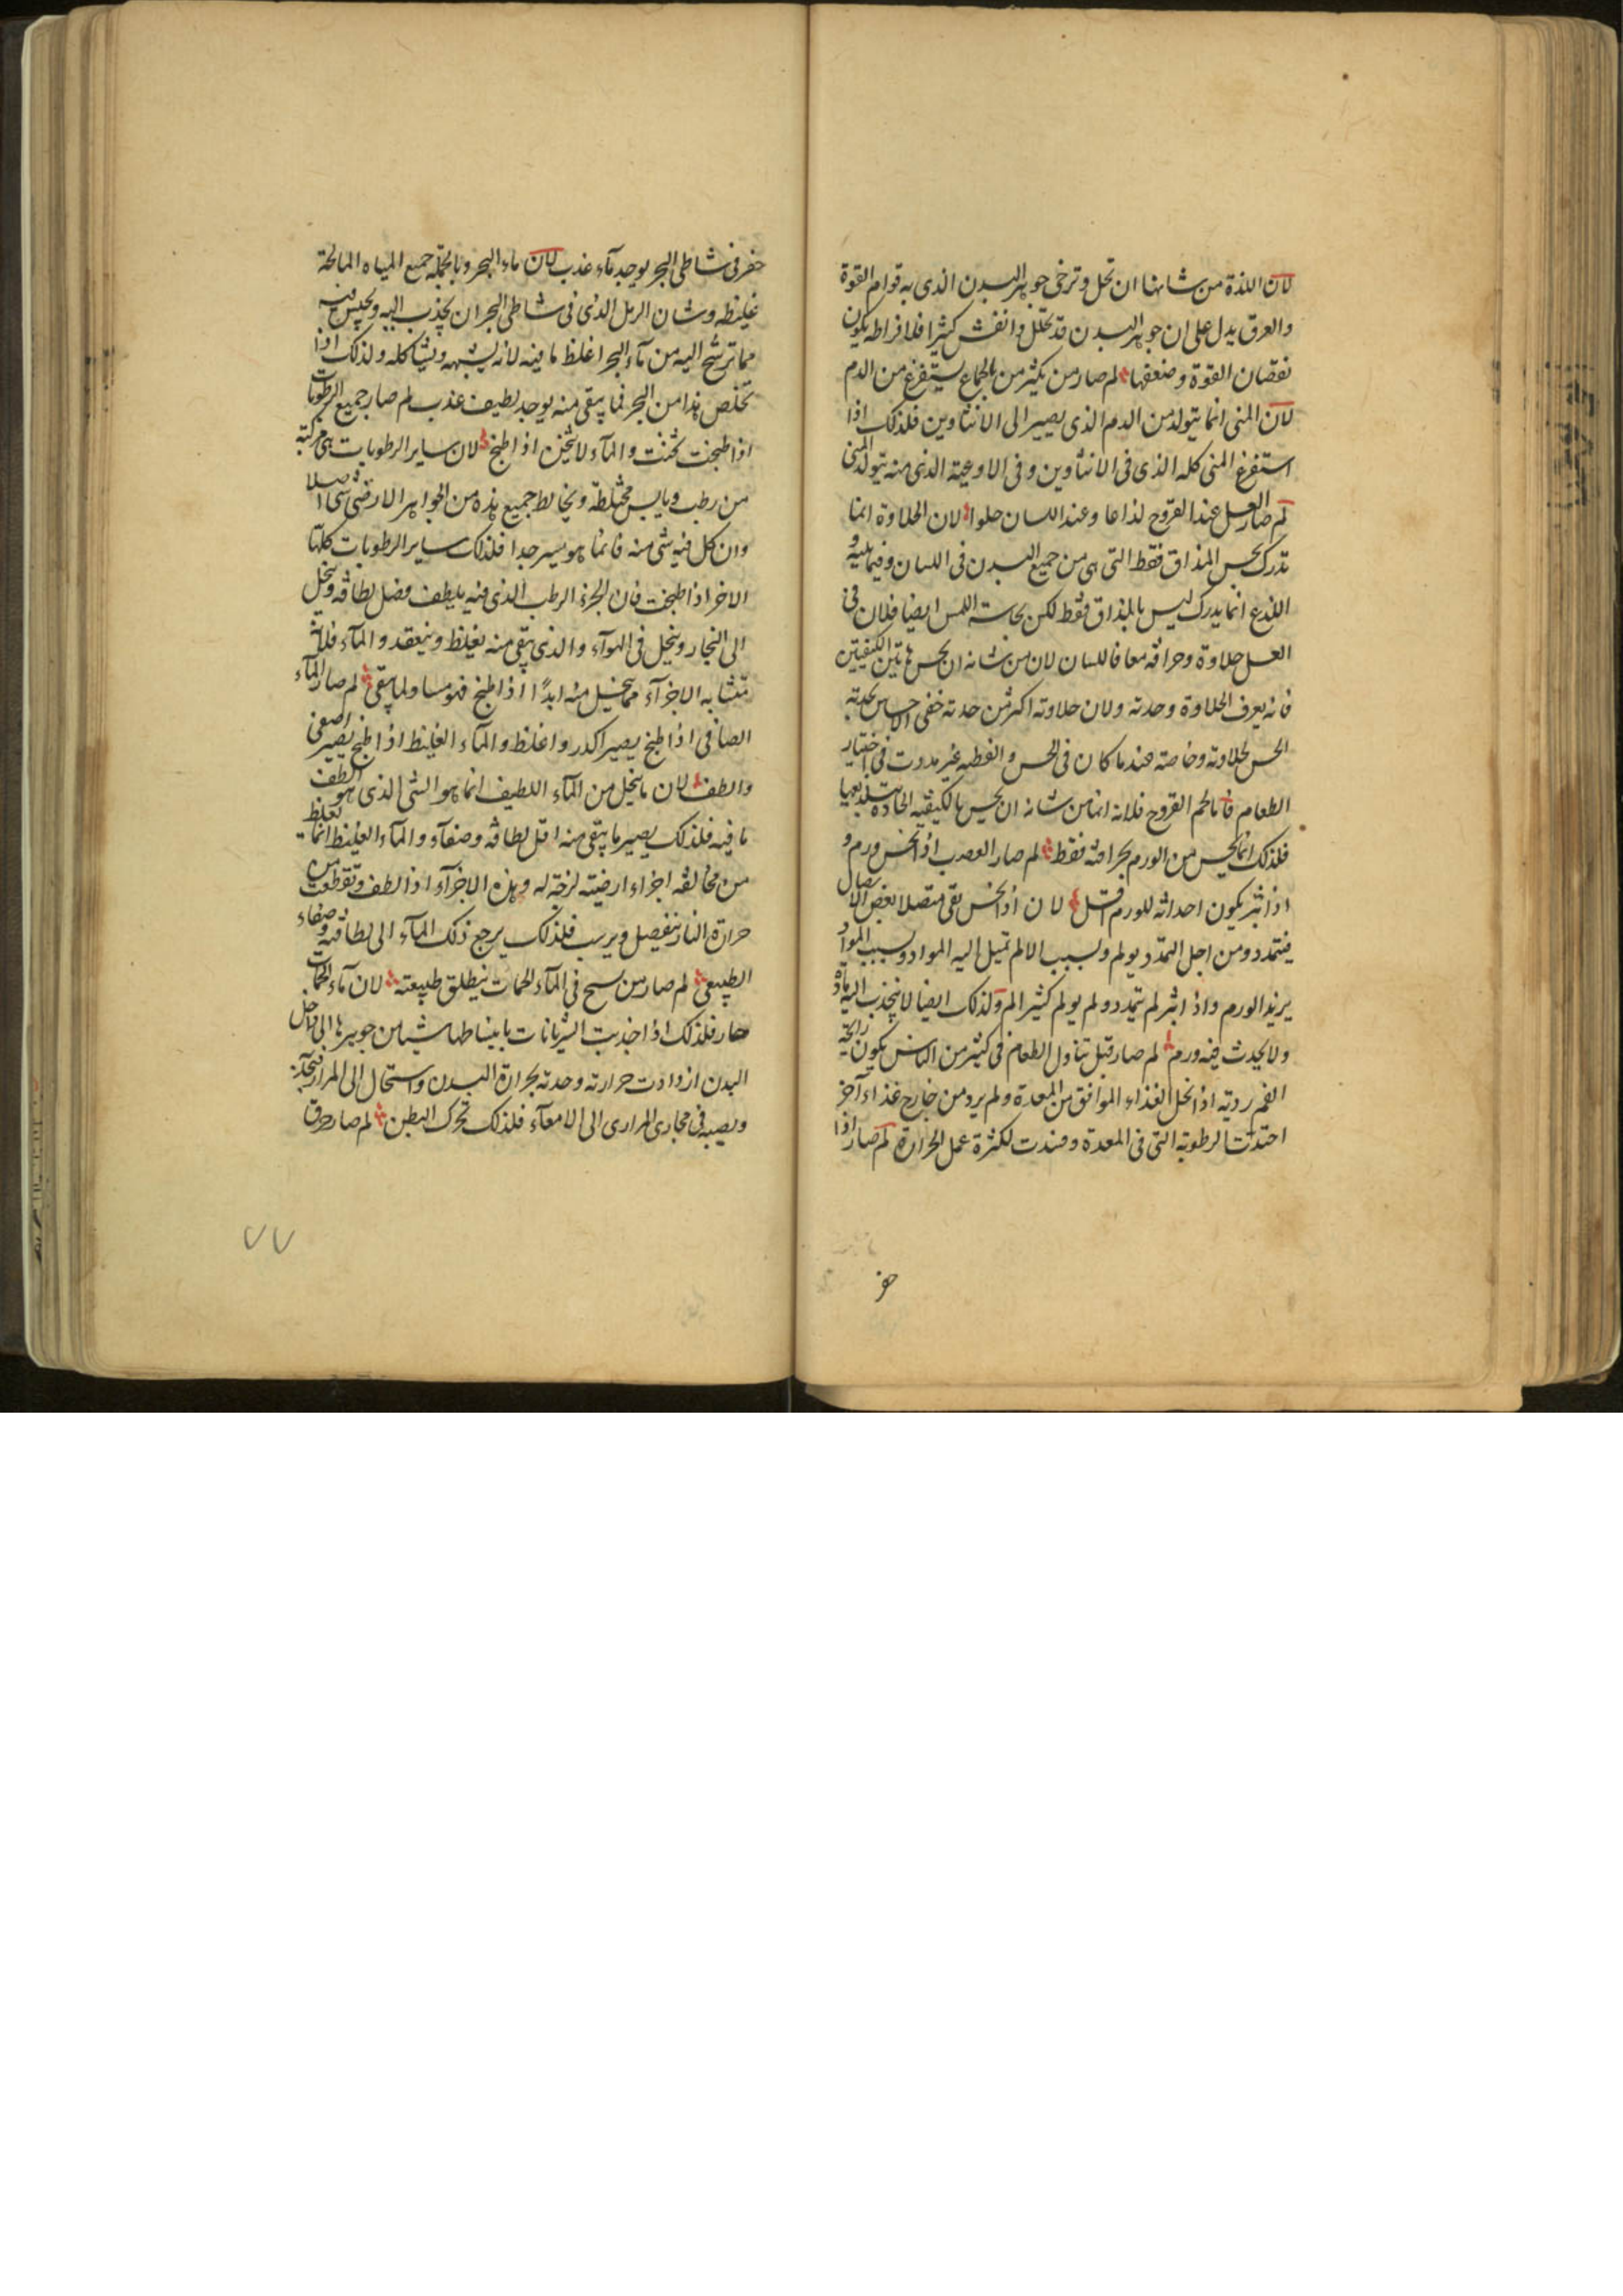 لان اللذة من شانها ان تحل وترخى جوهر البدن الذى به قوام القوة
والعرق يدل على ان جوهر البدن قد تحلل وانفش كثيرا فلافراطه يكون
نقصان القوة وضعفها لم صار من يكثر من الجماع يستفرغ من الدم
لان المنى انما يتولد من الدم الذى يصير الى الانثاوين فلذلك اذا
استفرغ المنى كله الذى فى الانثاوين وفى الاوعية الذى منه يتولد المنى
لم صار العسل عند القروح لذاعا وعند اللسان حلوا لان الحلاوة انما
تدرك بحس المذاق فقط التى هى من جميع البدن فى اللسان وفيما يليه و
اللذع انما يدرك ليس بالمذاق فقط لكن بحاسة اللمس ايضا فلان فى
العسل حلاوة وحرافة معا فاللسان لان من شانه ان يحس هاتين الكيفيتين
فانه يعرف الحلاوة وحدته ولان حلاوته اكثر من حدته خفى الاحساس بحدته
الحس بحلاوته وخاصته عندما كان فى الحس والفطنه غير مدروب فى اختيار
الطعام فاما لحم القروح فلانه انما من شانه ان يحس بالكيفيه الحادة
فلذلك انما يحس من الورم بحرافته فقط لم صار العصب اذا نخس ورم و
اذا بتر يكون احداثه للورم اقل لان اذا نخس بقى متصلا بعض الاتصال
فيتمدد ومن اجل التمدد يولم ولسبب الالم تميل اليه المواد وبسبب المواد
يزيد الورم واذا ابتر لم يتمدد ولم يولم كثير الم ولذلك ايضا لا ينجذب اليه مادة
ولا يحدث فيه ورم لم صار قبل تناول الطعام فى كثير من الناس يكون رايحة
الفم ردية اذا نحل الغذاء الموافق من المعدة ولم يرد من خارج غذاء آخر
احتدت الرطوبة التى فى المعدة وفسدت لكثرة عمل الحرارة لم صار اذا
حفر
حفر فى شاطى البحر يوجد مآء عذب لان ماء البحر وبالجملة جميع المياه المالحة
غليظه وشان الرمل الذى فى شاطى البحر ان يجذب اليه ويحبس فيه
مما ترشح اليه من مآء البحر اغلظ ما فيه لانه يشبهه ويشاكله ولذلك اذا
تخلص هذا من البحر فما يبقى منه يوجد لطيف عذب لم صار جميع الرطوبات
اذا طبخت ثخنت والمآء لا يثخن اذا طبخ لان ساير الرطوبات هى مركبة
من رطب ويابس مختلطة ويخالط جميع هذه من الجواهر الارضى شى اصلا
وان كل فيه شى منه فانما هو يسير جدا فلذلك ساير الرطوبات كلها
الاخر اذا طبخت فان الجزء الرطب الذى فيه يلطف فضل لطافة وينحل
الى البخار وينحل فى الهوآء والذى يبقى منه يغلظ وينعقد والمآء فلانه
متشابه الاجزآء مما ينحل منه ابدًا اذا طبخ فهو مساو لما يبقى لم صار المآء
الصافى اذا طبخ يصير اكدر واغلظ والمآء الغليظ اذا طبخ يصير اصفى
والطف لان ما ينحل من المآء اللطيف انما هو الشى الذى هو الطف
ما فيه فلذلك يصير ما يبقى منه اقل لطافة وصفآء والمآء الغليظ انما يغلظ
من مخالفة اجزاء ارضية لزجة له وهذه الاجزآء اذا لطف وتقطعت من
حرارة النار تنفصل ويرسب فلذلك يرجع ذلك المآء الى لطافته وصفاء
الطبيعى لم صار من سبح فى المآء الحمات ينطلق طبيعته لان مآء الحمات
حار فلذلك اذا اجذبت الشريانات بانبساطها شيا من جوهرها الى داخل
البدن ازدادت حرارته وحدته بحرارة البدن واستحال الى المرار
ويصبه فى مجارى المرارى الى الامعآء فلذلك تحرك البطن لم صار
٧٧